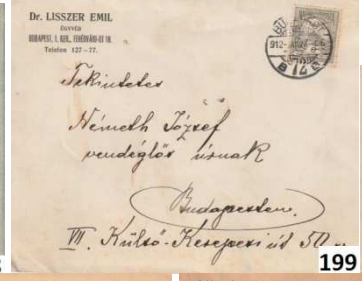 Dr. LISSZER EMIL
ÜGYVÉD
BUDAPEST, I. KER., FEHÉRVÁRI-UT 18.
Telefon 127-77.
Tekintetes
Németh József
vendéglős úrnak
Budapesten
VII. Külső-Kerepesi út 50
199